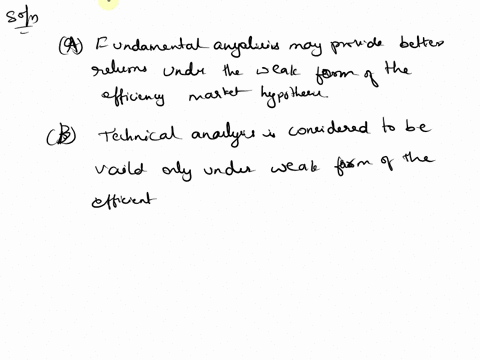 Soln
(A) Fundamental anyalicis may provide better
returns under the weak form of the
efficiency market hypothere
(B) Technical analysis is considered to be
vaild only under weak form of the
efficient